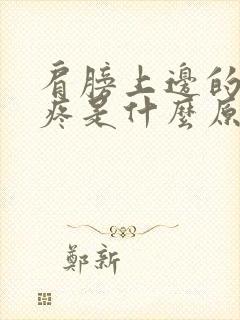 肩膀上邊的
疼是什麼原
鄭新